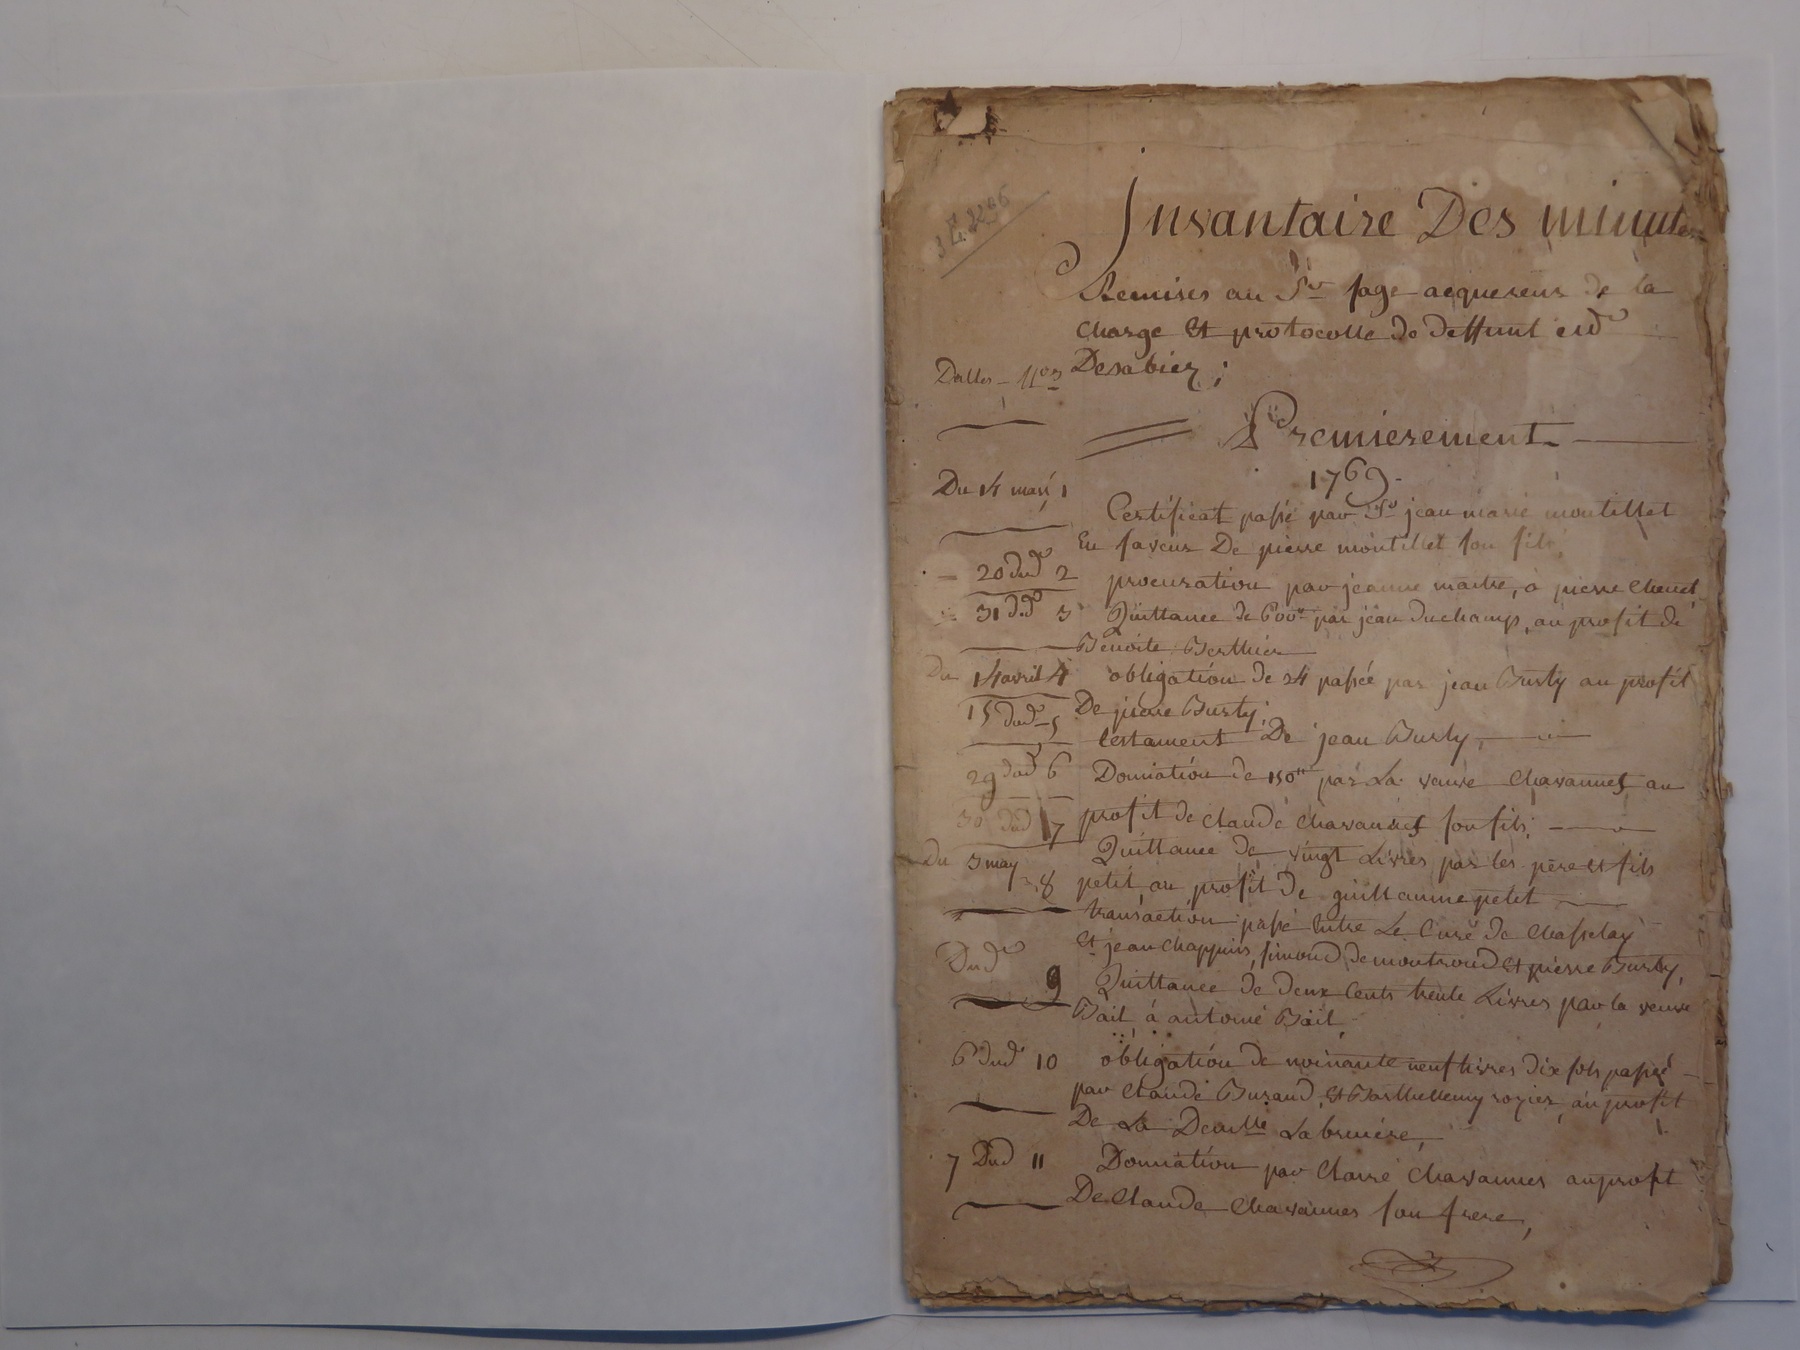 3 E 3206
Invantaire Des minutes
Remises au Sr. fage acquereur de la
charge Et protocolle de deffunt
Dattes - Nos Desabiez ;
Premierement
1769.
Du 14 mars 1 Certificat passé par Sr. jean marie montillet
En faveur De pierre montillet son fils,
20 dud 2 procuration par jeanne maitre, a pierre
31 dud 3 Quittance de 600tt par jean duchamp, au profit de
Benoite Berthier
Du 14 avril 4 obligation de 24 passée par jean Burty au profit
De pierre Burty
15 dud 5 testament De jean Burty,
29 dud 6 Donnation de 150tt par La veuve Chavannes au
profit de claude Chavannes son fils;
30 dud 7 Quittance de vingt Livres par les père et fils
petit au profit de guillaume petit
Du 3 may 8 transaction passé Entre Le Curé de Chasselay
Et jean chappuis, simond de montroud Et pierre Burty,
Dud 9 Quittance de deux Cents trente Livres par la veuve
Bait à antoine Bait,
6 dud 10 obligation de noinante neuf livres dix sols passé
par claude Burand, Et Barthellemy rozier, au profit
De La Demlle La bruiere,
7 Dud 11 Donnation par Claire Chavannes au profit
De Claude Chavannes son frere,